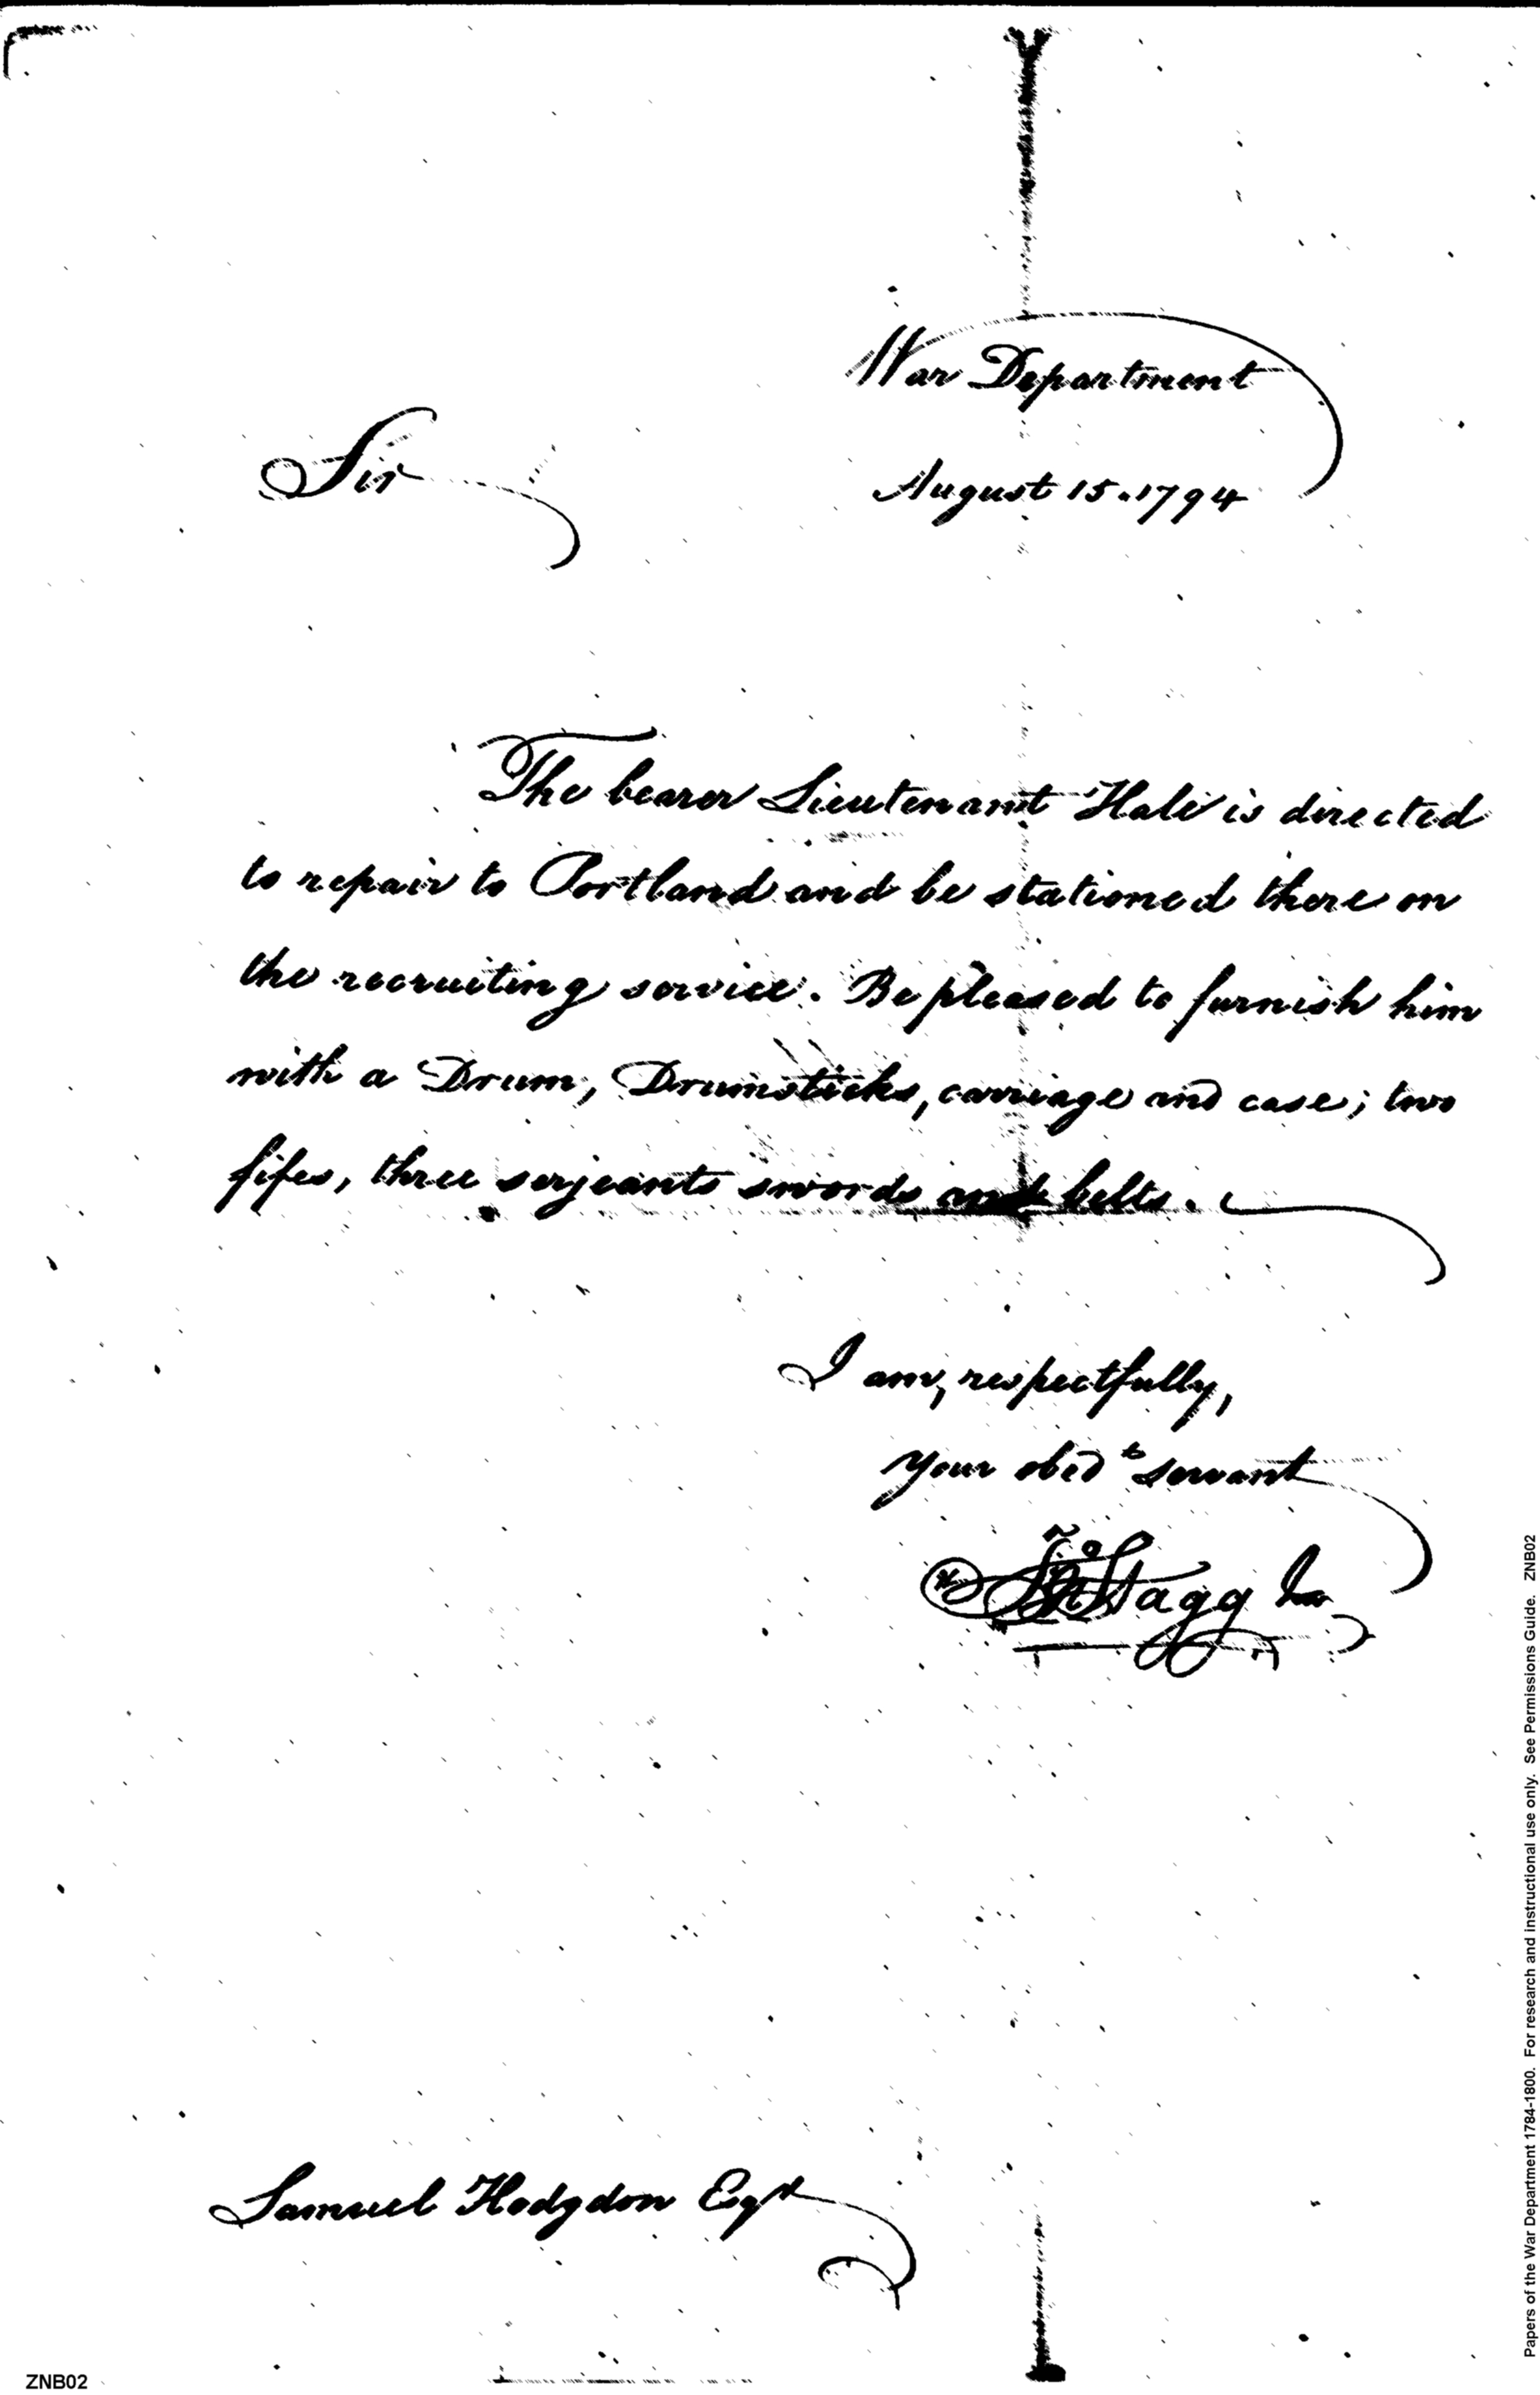 War Department
Sir
August 15. 1794
The bearer Lieutenant Hale is directed
to repair to Portland and be stationed there on
the recruiting service. Be pleased to furnish him
with a Drum, Drumsticks, carriage and case; two
fifes, three serjeants swords and belts.
I am, respectfully,
Your obedt servant
Jno Stagg Jr
Samuel Hodgdon Esqr
ZNB02
Papers of the War Department 1784-1800. For research and instructional use only. See Permissions Guide. ZNB02